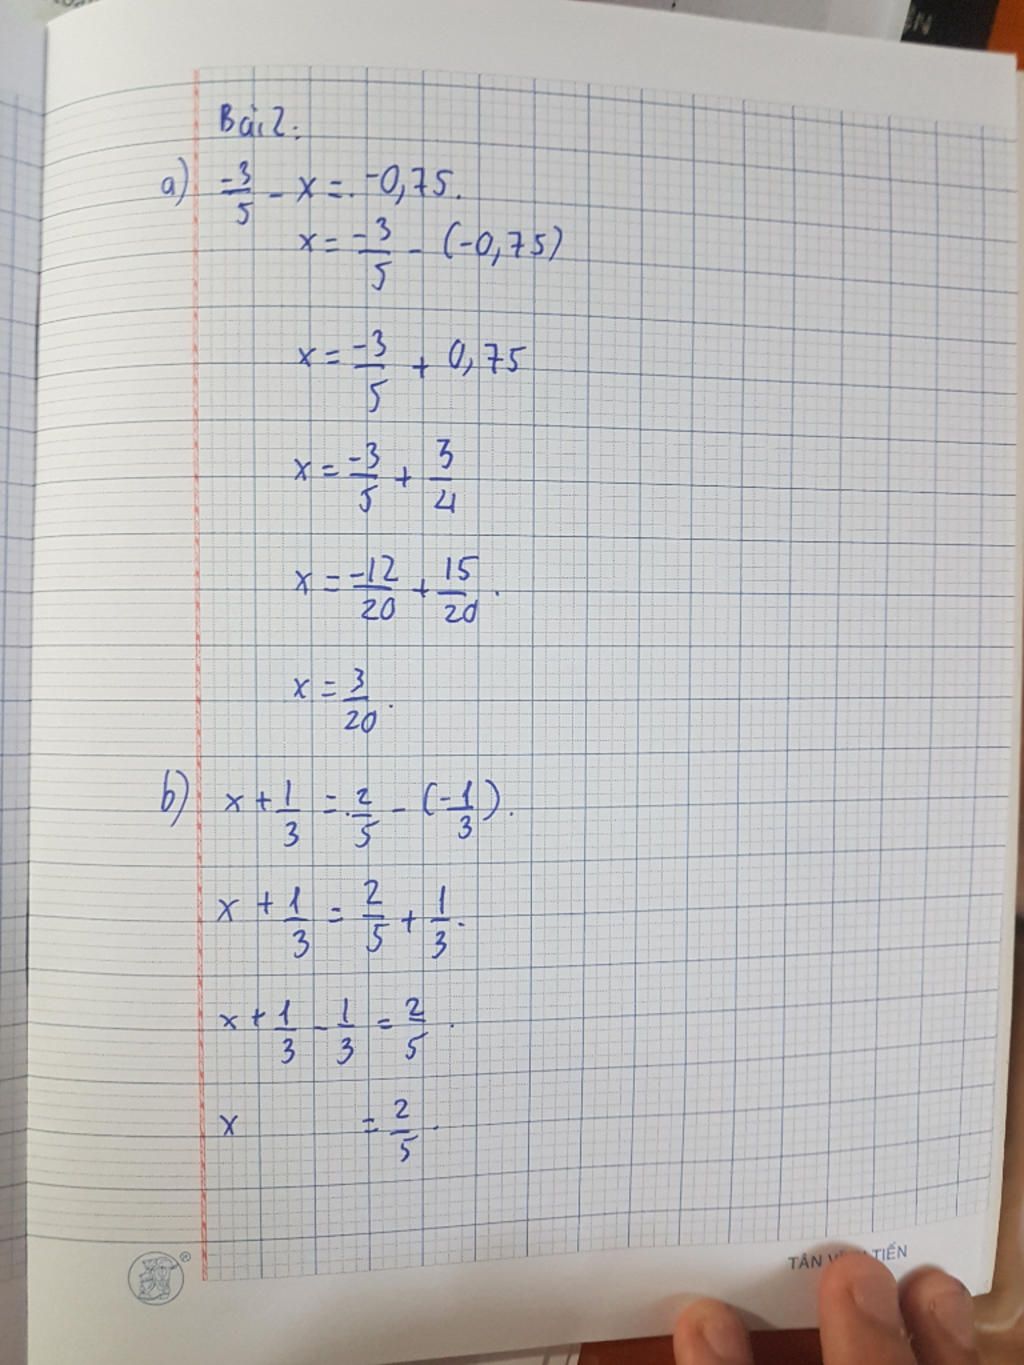 Bài 2:
a) -3/5 - x = -0,75.
x = -3/5 - (-0,75)
x = -3/5 + 0,75
x = -3/5 + 3/4
x = -12/20 + 15/20.
x = 3/20.
b) x + 1/3 = 2/5 - (-1/3).
x + 1/3 = 2/5 + 1/3.
x + 1/3 - 1/3 = 2/5.
x = 2/5.
®
TÂN TIẾN